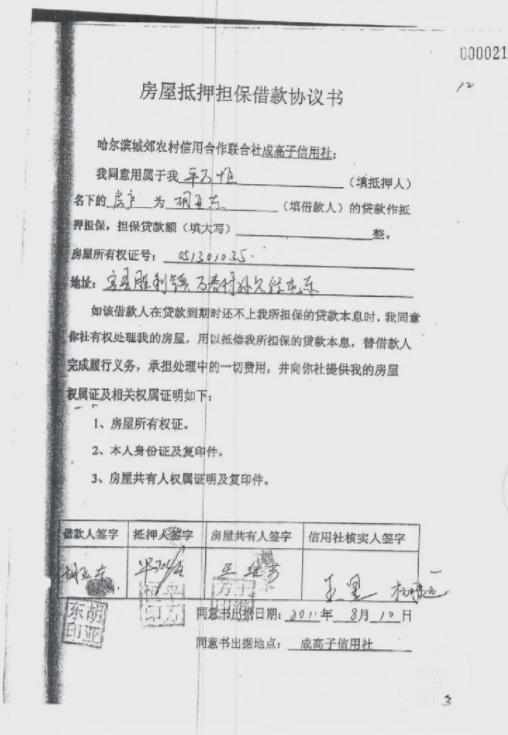 000021
12
房屋抵押担保借款协议书
哈尔滨城郊农村信用合作联合社成高子信用社：
我同意用属于我 （填抵押人）
名下的 房产 为 胡亚东 （填借款人）的贷款作抵
押担保，担保贷款额（填大写） 整。
房屋所有权证号： 051301035
地址： 宾县胜利镇万春村孙久住屯东
如该借款人在贷款到期时还不上我所担保的贷款本息时，我同意
你社有权处理我的房屋，用以抵偿我所担保的贷款本息，替借款人
完成履行义务，承担处理中的一切费用，并向你社提供我的房屋
权属证及相关权属证明如下：
1、房屋所有权证。
2、本人身份证及复印件。
3、房屋共有人权属证明及复印件。
借款人签字 抵押人签字 房屋共有人签字 信用社核实人签字
胡亚东
胡亚东印
同意书出据日期：2011年 8月 10日
同意书出据地点： 成高子信用社
3